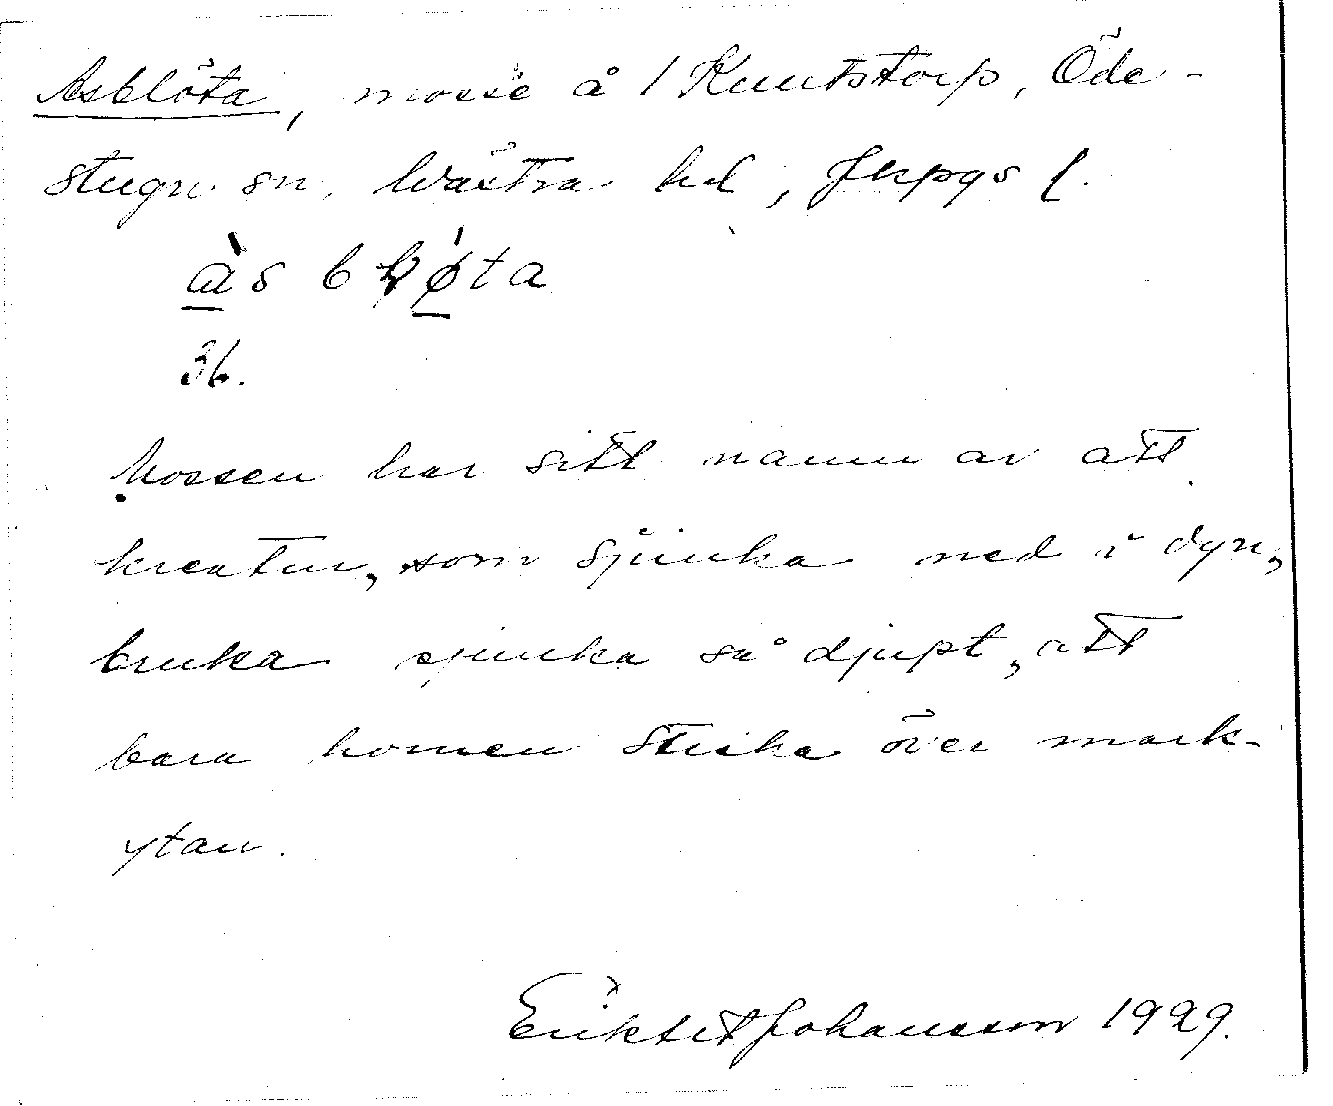 Asblöta, mosse å 1 Knutstorp, Öde-
stugu sn, Västra hd, Jkpgs l.
às b l ǿ t a
36.
Mossen har sitt namn av att
kreatur, som sjunka ned i dyn,
bruka sjunka så djupt, att
bara hornen sticka över mark-
ytan.
Johansson 1929.